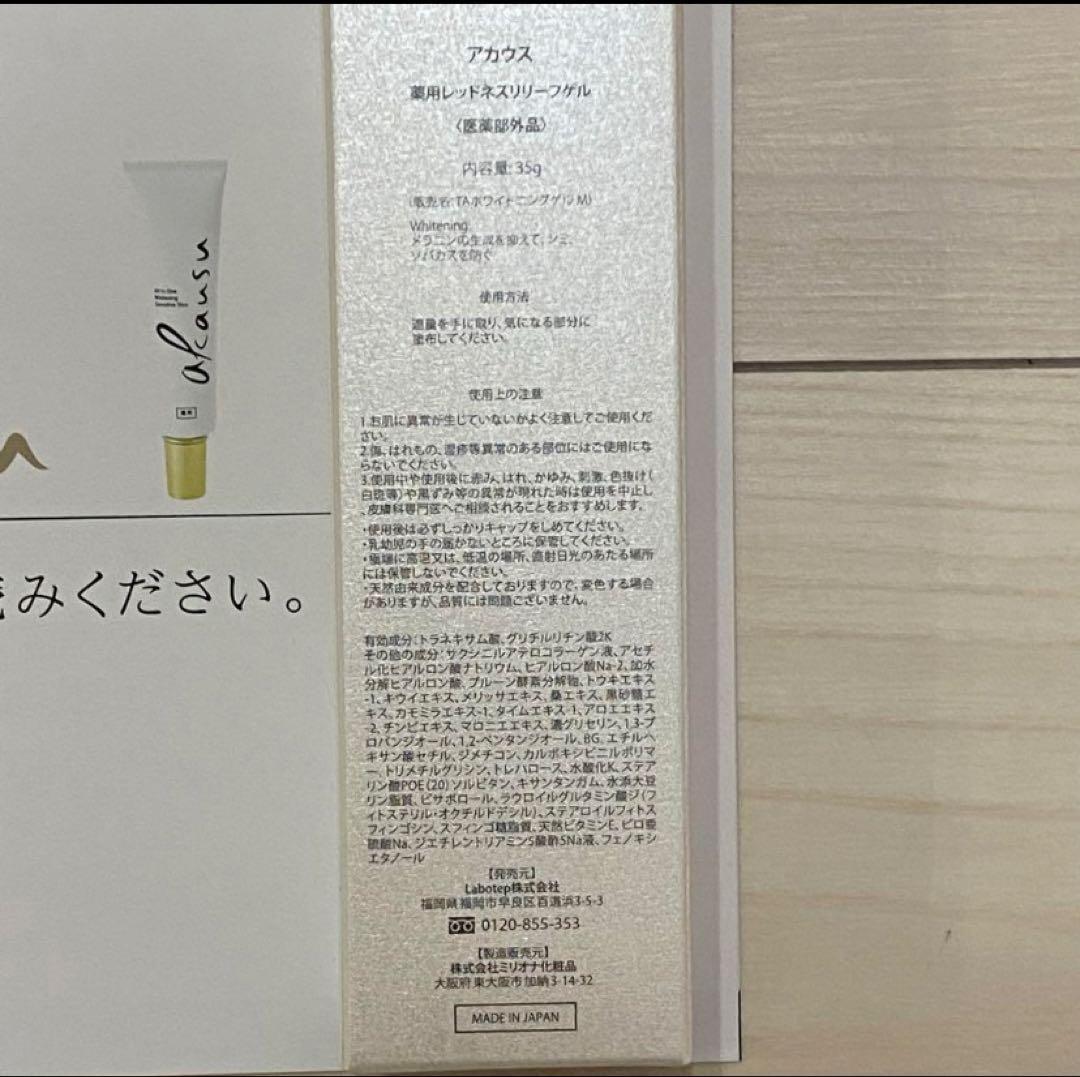 アカウス
薬用レッドネスリリーフゲル
〈医薬部外品〉
内容量: 35g
(販売名:TAホワイトニングゲルM)
Whitening
メラニンの生成を抑えて、シミ、
ソバカスを防ぐ
使用方法
適量を手に取り、気になる部分に
塗布してください。
使用上の注意
1.お肌に異常が生じていないかよく注意してご使用くだ
さい。
2.傷、はれもの、湿疹等異常のある部位にはご使用にな
らないでください。
3.使用中や使用後に赤み、はれ、かゆみ、刺激、色抜け(
白斑等)や黒ずみ等の異常が現れた時は使用を中止し
、皮膚科専門医へご相談されることをおすすめします。
・使用後は必ずしっかりキャップをしめてください。
・乳幼児の手の届かないところに保管してください。
・極端に高温又は、低温の場所、直射日光のあたる場所
には保管しないでください。
・天然由来成分を配合しておりますので、変色する場合
がありますが、品質には問題ございません。
有効成分:トラネキサム酸、グリチルリチン酸2K
その他の成分:サクシニルアテロコラーゲン液、アセチ
ル化ヒアルロン酸ナトリウム、ヒアルロン酸Na-2、加水
分解ヒアルロン酸、プルーン酵素分解物、トウキエキス
-1、キウイエキス、メリッサエキス、桑エキス、黒砂糖エ
キス、カモミラエキス-1、タイムエキス-1、アロエエキス
-2、チンピエキス、マロニエエキス、濃グリセリン、1,3-プ
ロパンジオール、1,2-ペンタンジオール、BG、エチルヘ
キサン酸セチル、ジメチコン、カルボキシビニルポリマ
ー、トリメチルグリシン、トレハロース、水酸化K、ステア
リン酸POE(20)ソルビタン、キサンタンガム、水添大豆
リン脂質、ビサボロール、ラウロイルグルタミン酸ジ(フ
ィトステリル・オクチルドデシル)、ステアロイルフィトス
フィンゴシン、スフィンゴ糖脂質、天然ビタミンE、ピロ亜
硫酸Na、ジエチレントリアミン5酢酸5Na液、フェノキシ
エタノール
【発売元】
Labotep株式会社
福岡県福岡市早良区百道浜3-5-3
0120-855-353
【製造販売元】
株式会社ミリオナ化粧品
大阪府東大阪市加納3-14-32
MADE IN JAPAN
akausu
All in One
Whitening
Sensitive Skin
薬用
みください。